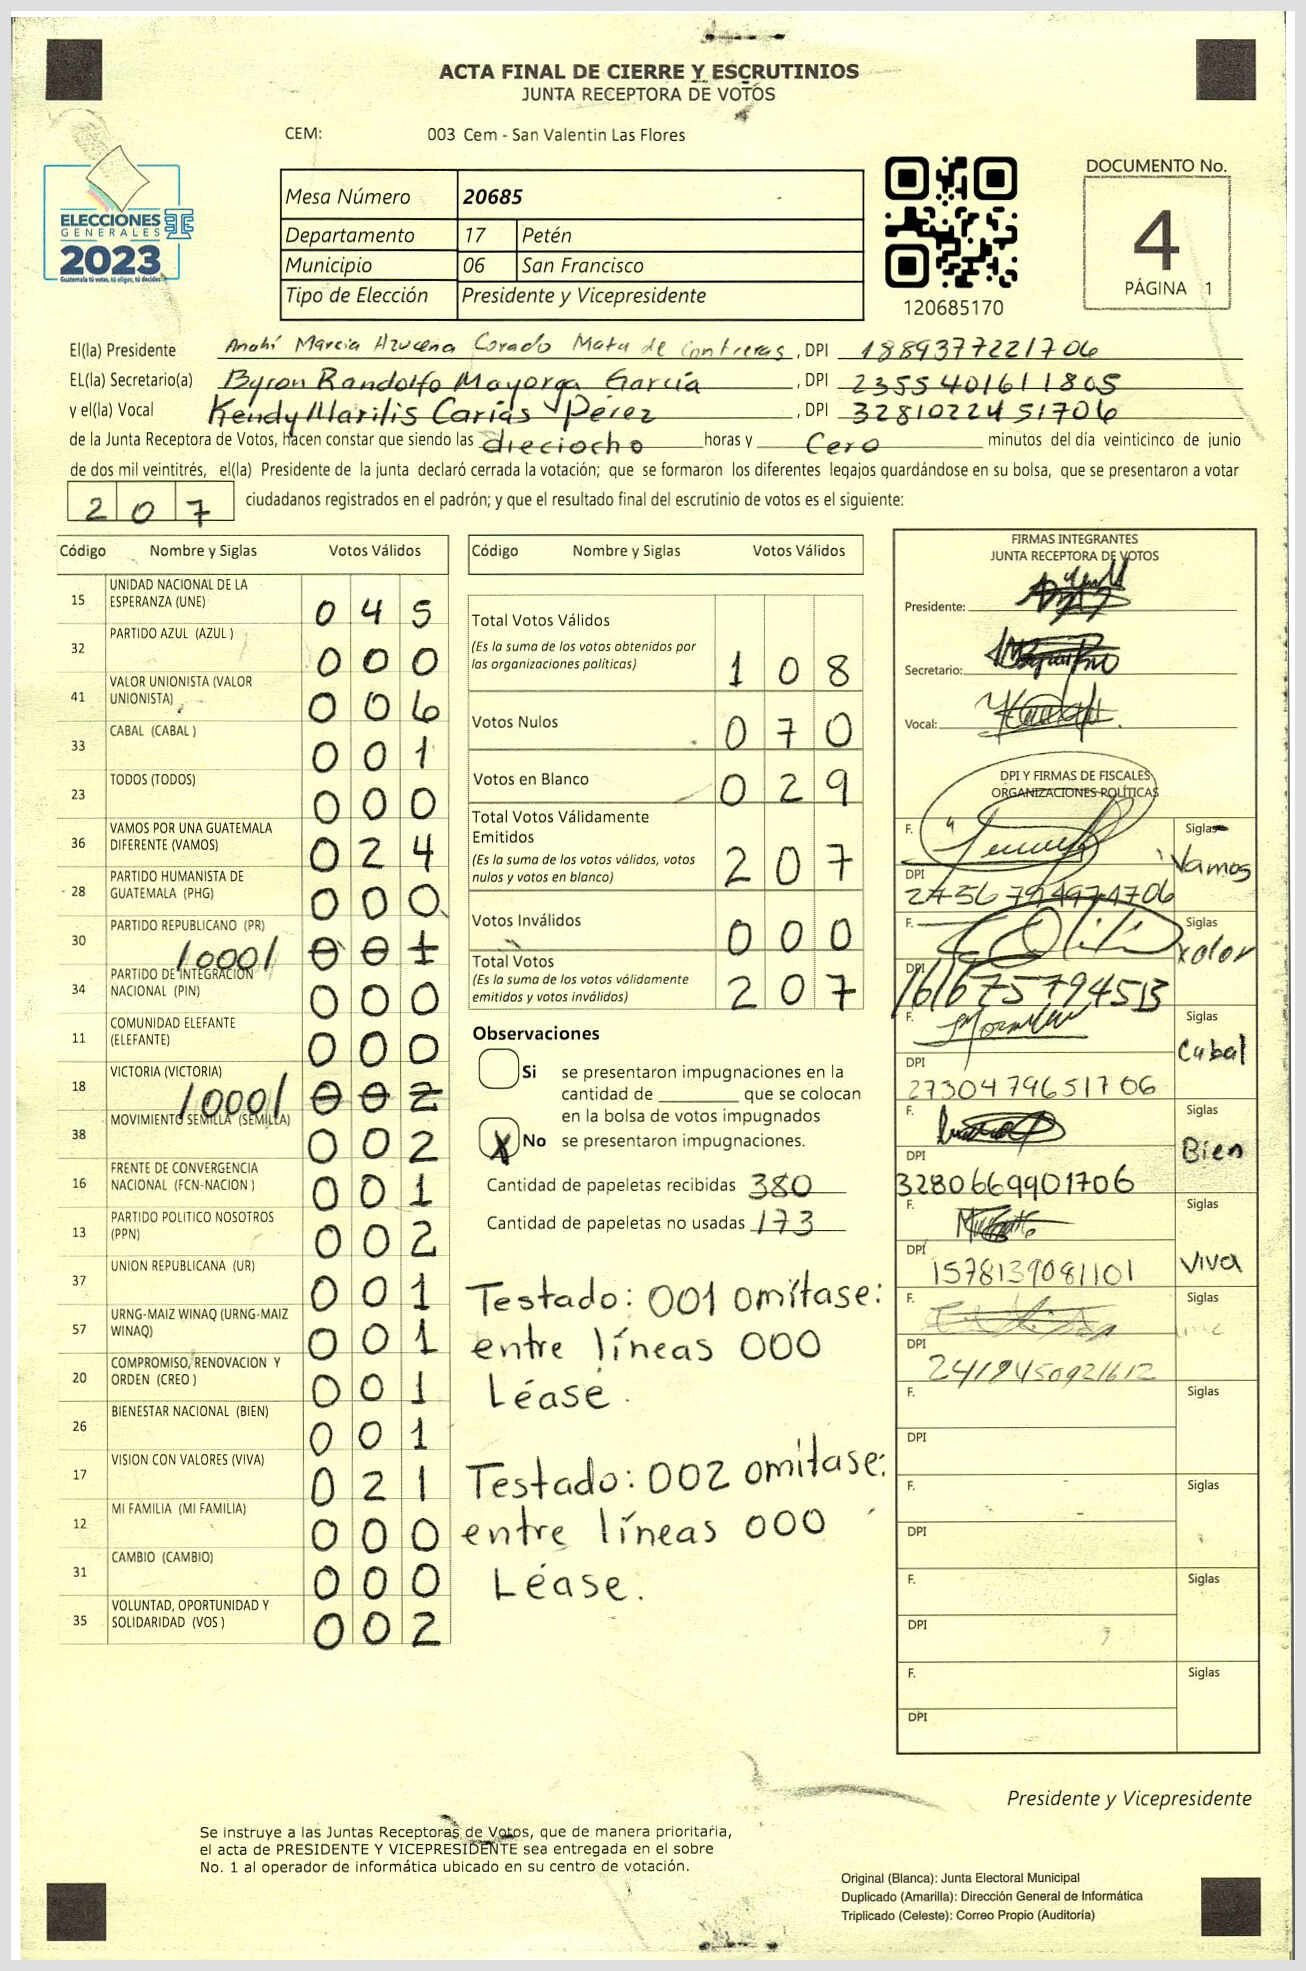 ACTA FINAL DE CIERRE Y ESCRUTINIOS
JUNTA RECEPTORA DE VOTOS
CEM: 003 Cem - San Valentin Las Flores
ELECCIONES
GENERALES
2023
Guatemala tú votas, tú eliges, tú decides
Mesa Número 20685
Departamento 17 Petén
Municipio 06 San Francisco
Tipo de Elección Presidente y Vicepresidente
120685170
DOCUMENTO No.
4
PÁGINA 1
El(la) Presidente Anahí Marcia Azucena Corado Mata de Contreras, DPI 1889377221706
EL(la) Secretario(a) Byron Randolfo Mayorga García, DPI 2355401611805
y el(la) Vocal Kendy Marilis Carías Pérez, DPI 3281022451706
de la Junta Receptora de Votos, hacen constar que siendo las dieciocho horas y Cero minutos del día veinticinco de junio
de dos mil veintitrés, el(la) Presidente de la junta declaró cerrada la votación; que se formaron los diferentes legajos guardándose en su bolsa, que se presentaron a votar
207 ciudadanos registrados en el padrón; y que el resultado final del escrutinio de votos es el siguiente:
Código Nombre y Siglas Votos Válidos
15 UNIDAD NACIONAL DE LA ESPERANZA (UNE) 045
32 PARTIDO AZUL (AZUL ) 000
41 VALOR UNIONISTA (VALOR UNIONISTA) 006
33 CABAL (CABAL ) 001
23 TODOS (TODOS) 000
36 VAMOS POR UNA GUATEMALA DIFERENTE (VAMOS) 024
28 PARTIDO HUMANISTA DE GUATEMALA (PHG) 000
30 PARTIDO REPUBLICANO (PR) /000/ 001
34 PARTIDO DE INTEGRACION NACIONAL (PIN) 000
11 COMUNIDAD ELEFANTE (ELEFANTE) 000
18 VICTORIA (VICTORIA) /000/ 002
38 MOVIMIENTO SEMILLA (SEMILLA) 002
16 FRENTE DE CONVERGENCIA NACIONAL (FCN-NACION ) 001
13 PARTIDO POLITICO NOSOTROS (PPN) 002
37 UNION REPUBLICANA (UR) 001
57 URNG-MAIZ WINAQ (URNG-MAIZ WINAQ) 001
20 COMPROMISO, RENOVACION Y ORDEN (CREO ) 001
26 BIENESTAR NACIONAL (BIEN) 001
17 VISION CON VALORES (VIVA) 021
12 MI FAMILIA (MI FAMILIA) 000
31 CAMBIO (CAMBIO) 000
35 VOLUNTAD, OPORTUNIDAD Y SOLIDARIDAD (VOS ) 002
Código Nombre y Siglas Votos Válidos
Total Votos Válidos
(Es la suma de los votos obtenidos por
las organizaciones políticas) 108
Votos Nulos 070
Votos en Blanco 029
Total Votos Válidamente
Emitidos
(Es la suma de los votos válidos, votos
nulos y votos en blanco) 207
Votos Inválidos 000
Total Votos
(Es la suma de los votos válidamente
emitidos y votos inválidos) 207
Observaciones
Si se presentaron impugnaciones en la
cantidad de ________ que se colocan
en la bolsa de votos impugnados
X No se presentaron impugnaciones.
Cantidad de papeletas recibidas 380
Cantidad de papeletas no usadas 173
Testado: 001 omítase:
entre líneas 000
Léase.
Testado: 002 omítase:
entre líneas 000
Léase.
FIRMAS INTEGRANTES
JUNTA RECEPTORA DE VOTOS
Presidente:
Secretario:
Vocal:
DPI Y FIRMAS DE FISCALES
ORGANIZACIONES POLÍTICAS
F. Siglas Vamos
DPI
F. Siglas Valor
DPI 1616757794513
F. Siglas Cabal
DPI 2730479651706
F. Siglas Bien
DPI 3280669901706
F. Siglas Viva
DPI 1578139081101
F. Siglas
DPI 2419450921612
F. Siglas
DPI
F. Siglas
DPI
F. Siglas
DPI
F. Siglas
DPI
Presidente y Vicepresidente
Se instruye a las Juntas Receptoras de Votos, que de manera prioritaria,
el acta de PRESIDENTE Y VICEPRESIDENTE sea entregada en el sobre
No. 1 al operador de informática ubicado en su centro de votación.
Original (Blanca): Junta Electoral Municipal
Duplicado (Amarilla): Dirección General de Informática
Triplicado (Celeste): Correo Propio (Auditoría)